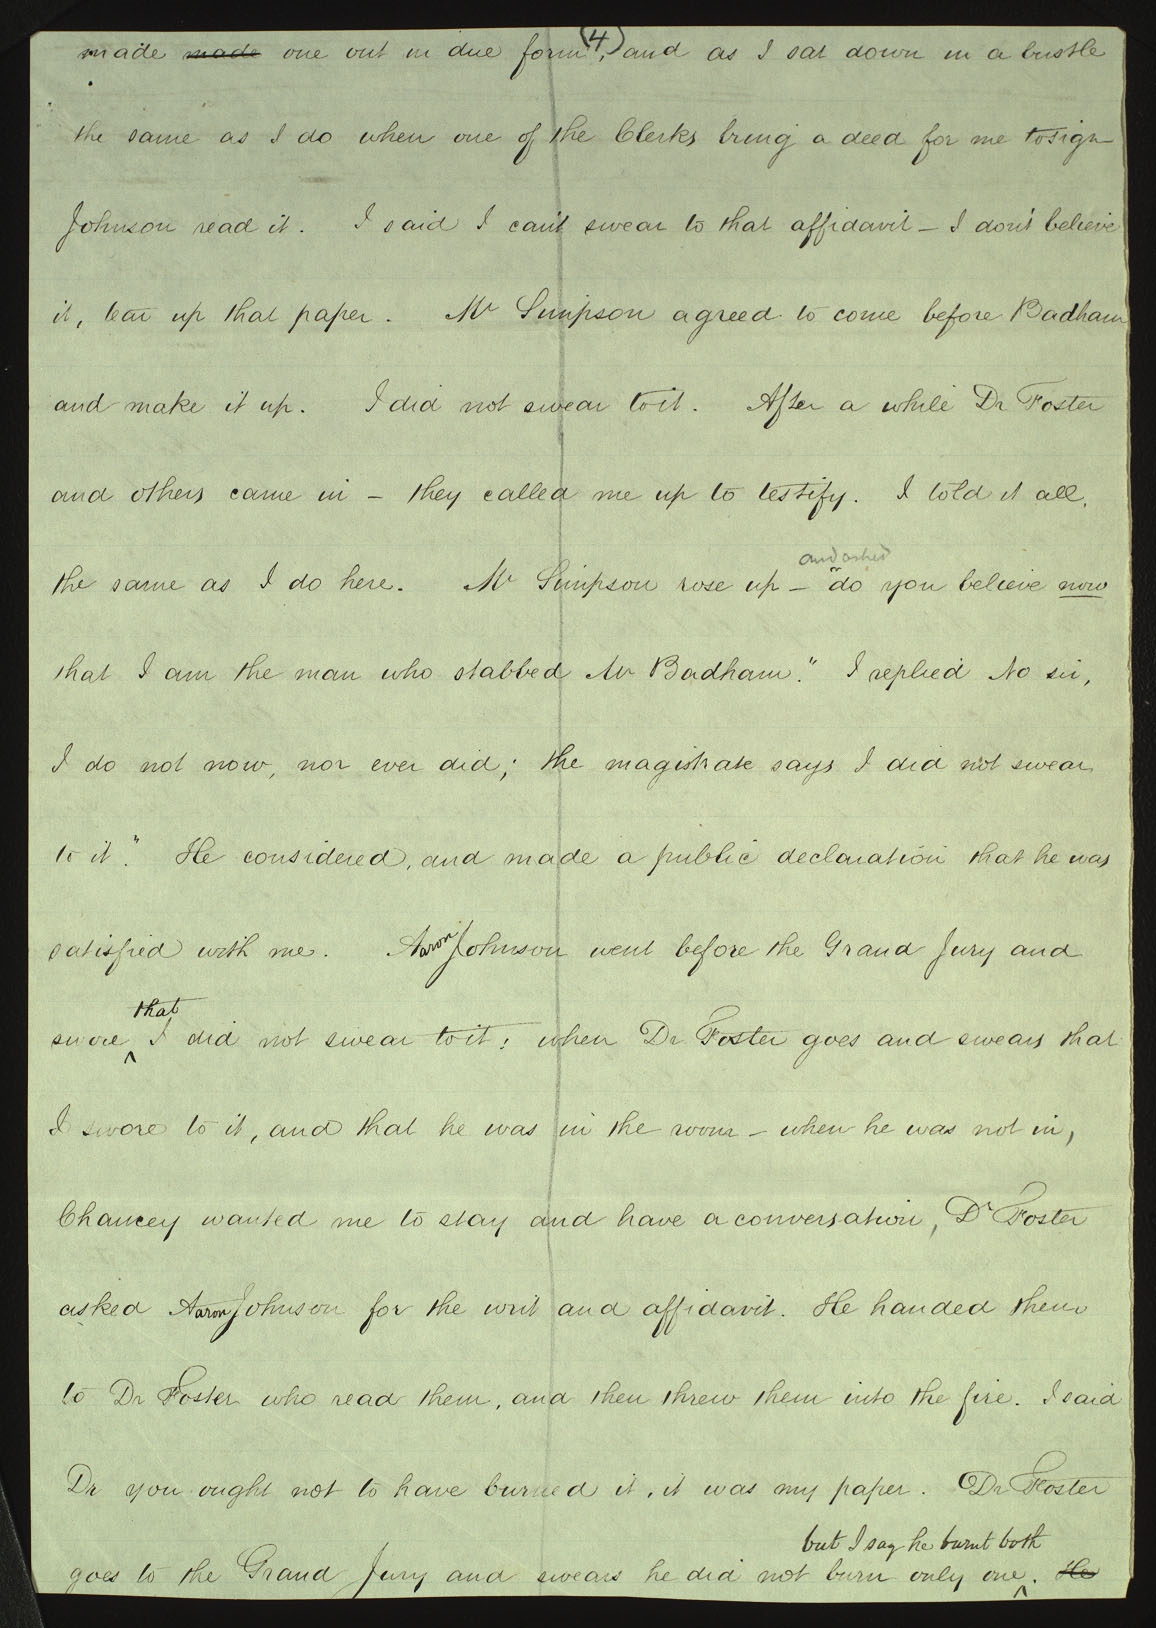 (4)
made made one out in due form, and as I sat down in a bustle
the same as I do when one of the Clerks bring a deed for me to sign
Johnson read it. I said I can't swear to that affidavit – I don't believe
it, tear up that paper. Mr Simpson agreed to come before Badham
and make it up. I did not swear to it. After a while Dr Foster
and others came in – they called me up to testify. I told it all,
the same as I do here. Mr Simpson rose up – and asked "do you believe now
that I am the man who stabbed Mr Badham." I replied No sir,
I do not now, nor ever did; the magistrate says I did not swear
to it". He considered, and made a public declaration that he was
satisfied with me. Aaron Johnson went before the Grand Jury and
swore that I did not swear to it; when Dr Foster goes and swears that
I swore to it, and that he was in the room – when he was not in,
Chancey wanted me to stay and have a conversation, Dr Foster
asked Aaron Johnson for the writ and affidavit. He handed them
to Dr Foster who read them, and then threw them into the fire. I said
Dr you ought not to have burned it, it was my paper. Dr Foster
goes to the Grand Jury and swears he did not burn only one, but I say he burnt both. He